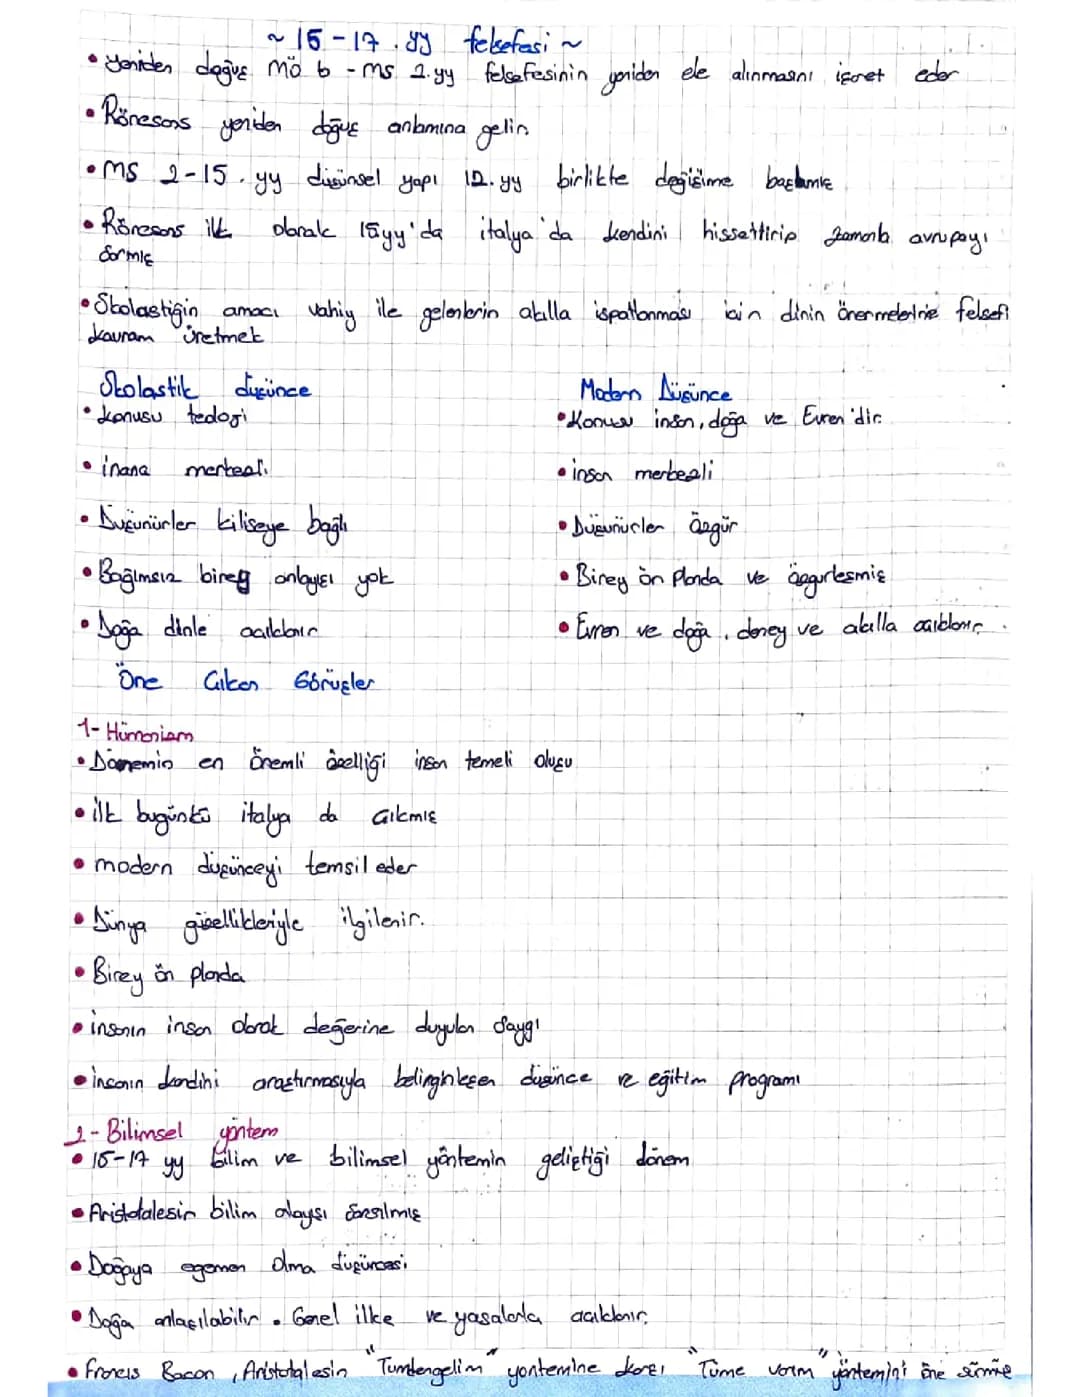 ~ 15-17. yy felsefesi ~
• Yeniden doğuş MÖ 6 - MS 2.yy felsefesinin yeniden ele alınmasını işaret eder
• Rönesans yeniden doğuş anlamına gelir.
• MS 2-15. yy düşünsel yapı 12.yy birlikte değişime başlamış
• Rönesans ilk olarak 15yy'da italya'da kendini hissettirip zamanla avrupayı
sarmış
• Skolastiğin amacı vahiy ile gelenlerin akılla ispatlanması için dinin önermelerine felsefi
kavram üretmek
Skolastik düşünce
Modern Düşünce
• konusu teoloji
• Konusu insan, doğa ve Evren'dir.
• inanç merkezli.
• insan merkezli
• Düşünürler kiliseye bağlı
• Düşünürler özgür
• Bağımsız birey anlayışı yok
• Birey ön planda ve özgürleşmiş
• Doğa dinle açıklanır
• Evren ve doğa, deney ve akılla açıklanır.
Öne Çıkan Görüşler
1- Hümanizm
• Dönemin en önemli özelliği insan temeli oluşu
• ilk bugünkü italya da çıkmış
• modern düşünceyi temsil eder
• Dünya güzellikleriyle ilgilenir.
• Birey ön planda
• insanın insan olarak değerine duyulan saygı
• insanın kendini araştırmasıyla belirginleşen düşünce ve eğitim programı
2- Bilimsel yöntem
• 15-17 yy bilim ve bilimsel yöntemin geliştiği dönem
• Aristotalesin bilim alayışı sarsılmış
• Doğaya egemen olma düşüncesi
• Doğa anlaşılabilir. Genel ilke ve yasalarla açıklanır.
• Francis Bacon, Aristotalesin "Tümdengelim" yöntemine karşı "Tüme varım" yöntemini öne sürmüş